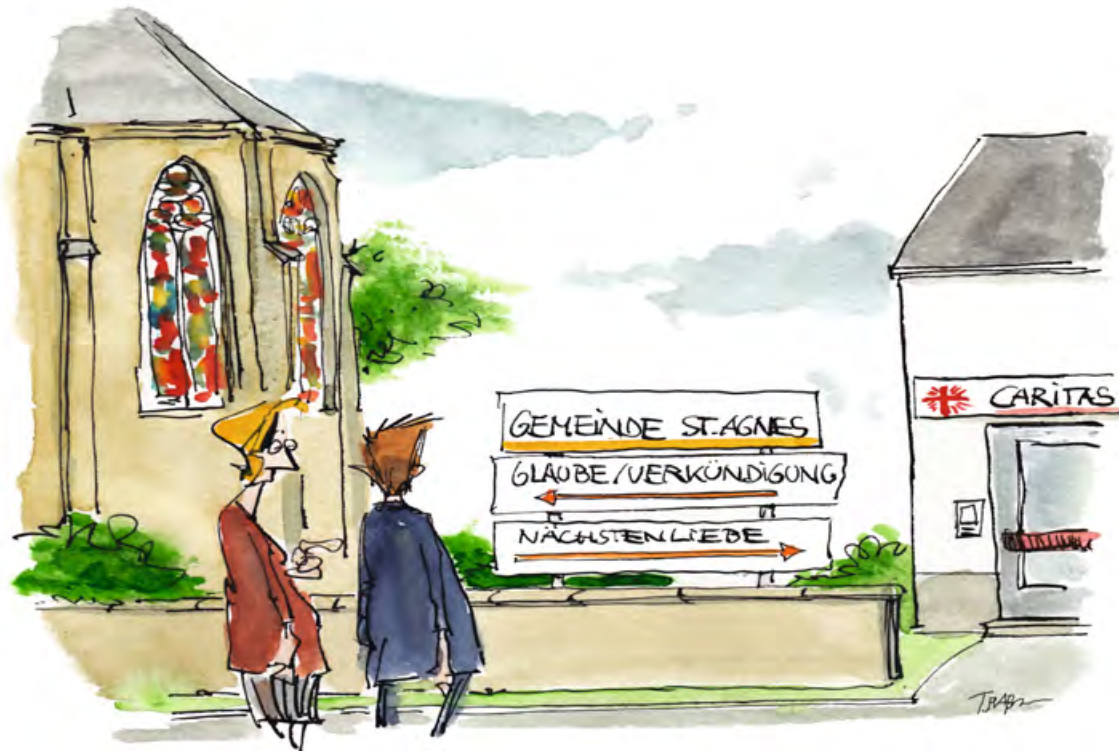 GEMEINDE ST. AGNES
GLAUBE/VERKÜNDIGUNG
NÄCHSTENLIEBE
CARITAS